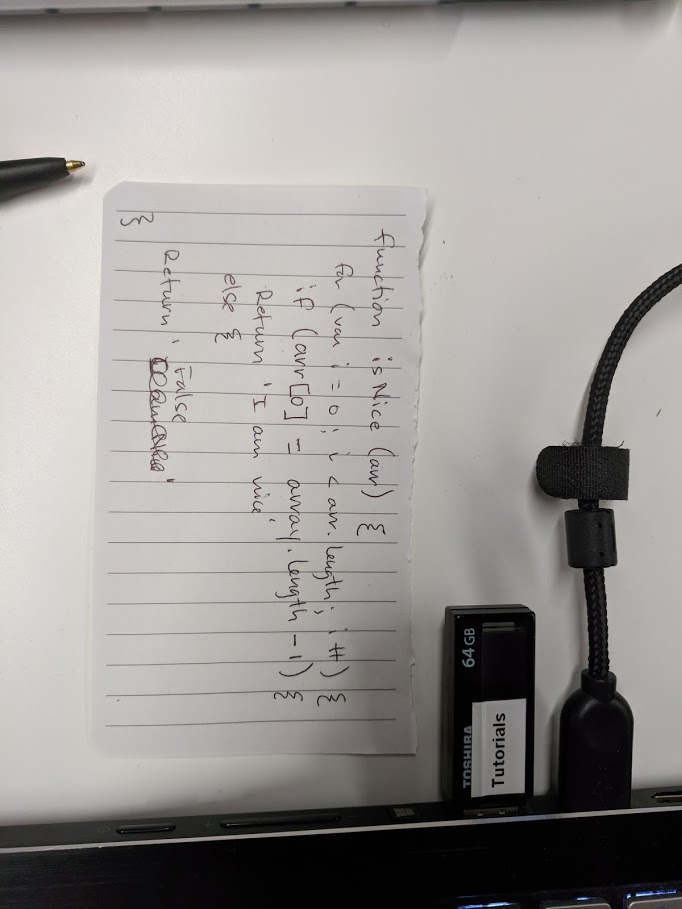 function isNice (arr) {
for (var i = 0; i < arr.length; i++) {
if (arr[0] = array.length -1) {
Return 'I am nice'
else {
Return 'False
'
}
TOSHIBA
64 GB
Tutorials